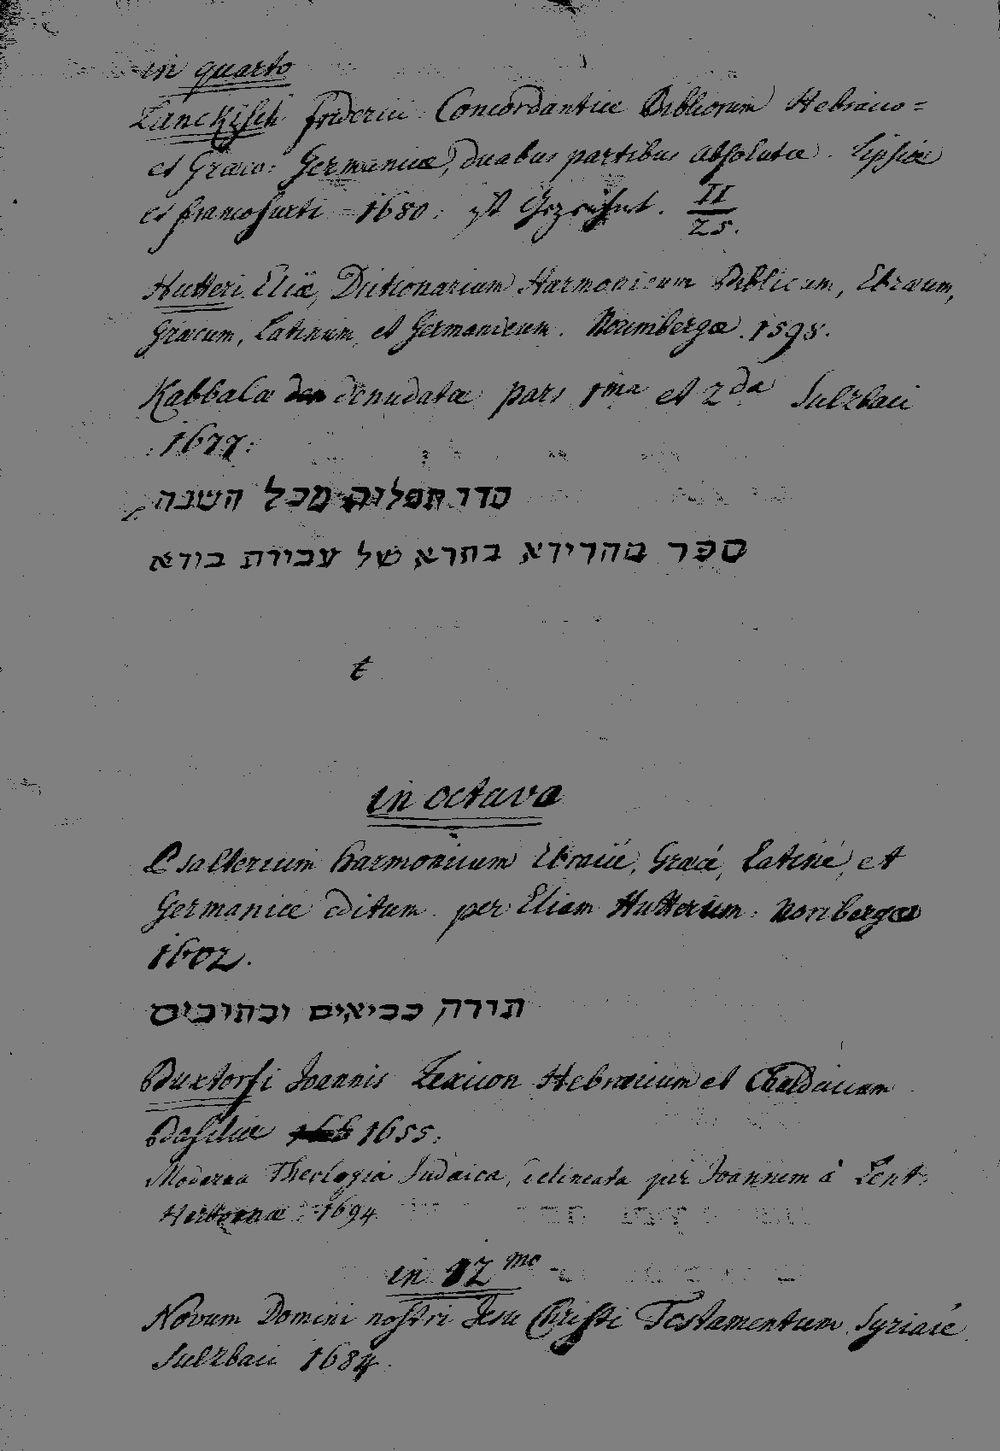 in quarto
Lanckisch friderici Concordantiæ Bibliorum Hebraico=
et Græco: Germanicæ, duabus partibus absolutæ. Lipsiæ
et francofurti 1680. ist Gezeichnet. II/25.
Hutteri Eliæ, Dictionarium Harmonicum Biblicum, Ebræum,
Græcum, Latinum, et Germanicum. Norimbergæ. 1598.
Kabbalæ denudatæ pars 1ma et 2da Sulzbaci
1677.
סדר תפלות מכל השנה
ספר מהרידא בתרא של עבודת בודא
t
in octava
Psalterium harmonicum Ebraicè, Græcè, Latinè, et
Germanicè editum per Eliam Hutterum. Noribergæ
1602.
תורה נביאים וכתובים
Buxtorfi Joannis Lexicon Hebraicum et Chaldaicum
Basileæ 1655.
Moderna Theologia Judaica, delineata per Joannem à Lent.
Herbornæ 1694
in 12mo
Novum Domini nostri Jesu Christi Testamentum Syriacè
Sulzbaci 1684.